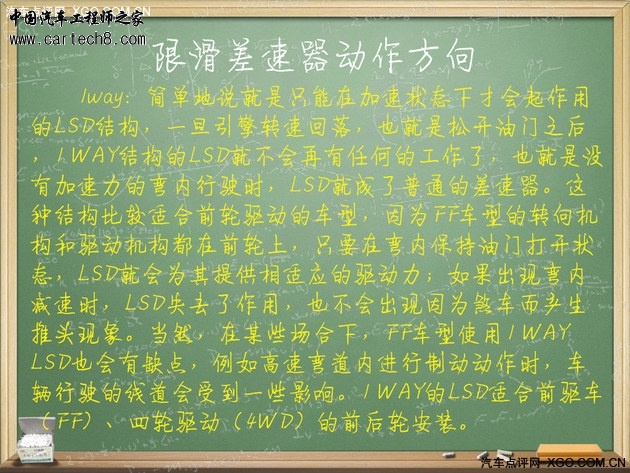 汽车点评网-XGO.COM.CN
中国汽车工程师之家
www.cartech8.com
限滑差速器动作方向
1way：简单地说就是只能在加速状态下才会起作用
的LSD结构，一旦引擎转速回落，也就是松开油门之后
，1WAY结构的LSD就不会再有任何的工作了，也就是没
有加速力的弯内行驶时，LSD就成了普通的差速器。这
种结构比较适合前轮驱动的车型，因为FF车型的转向机
构和驱动机构都在前轮上，只要在弯内保持油门打开状
态，LSD就会为其提供相适应的驱动力；如果出现弯内
减速时，LSD失去了作用，也不会出现因为煞车而产生
推头现象。当然，在某些场合下，FF车型使用1WAY
LSD也会有缺点，例如高速弯道内进行制动动作时，车
辆行驶的线道会受到一些影响。1WAY的LSD适合前驱车
（FF）、四轮驱动（4WD）的前后轮安装。
汽车点评网-XGO.COM.CN